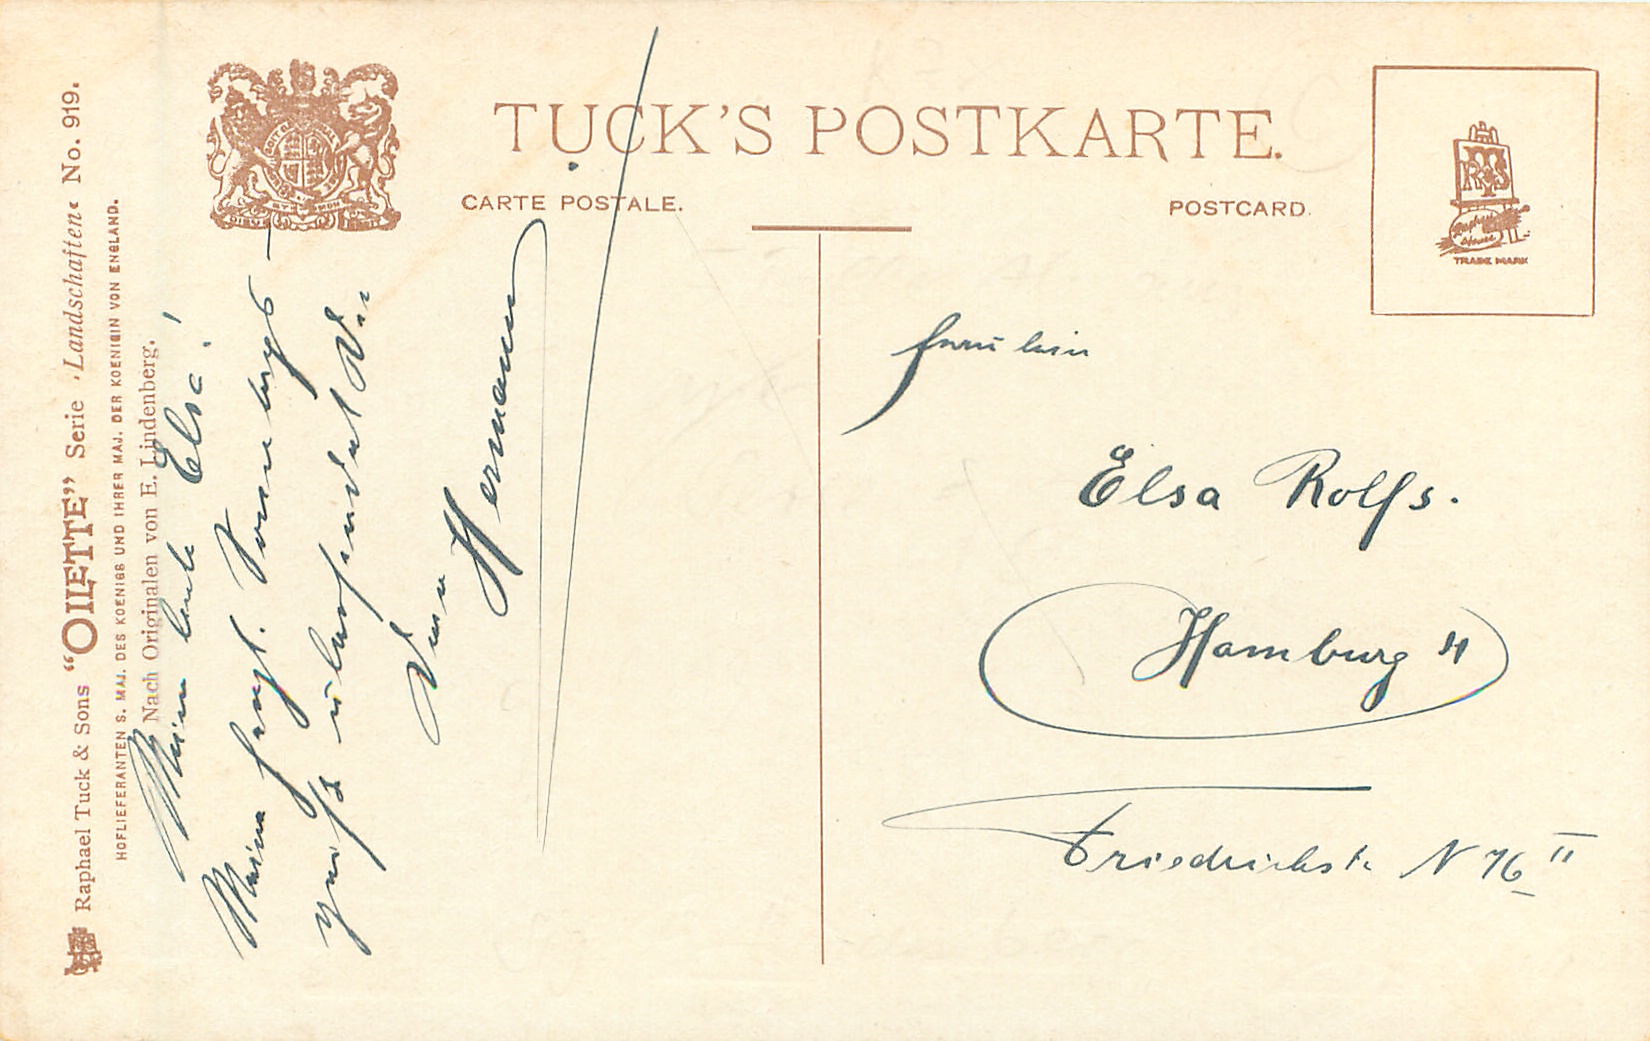 Raphael Tuck & Sons “OILETTE” Serie ›Landschaften‹ No. 919.
HOFLIEFERANTEN S. MAJ. DES KOENIGS UND IHRER MAJ. DER KOENIGIN VON ENGLAND.
Nach Originalen von E. Lindenberg.
TUCK'S POSTKARTE.
CARTE POSTALE.
POSTCARD.
Raphael House
TRADE MARK
Meine liebe Elsa!
Meine herzl. Sonntags-
grüße übersendet Dir
Dein
Hermann
Fräulein
Elsa Rolfs.
Hamburg 4
Friedrichstr N II